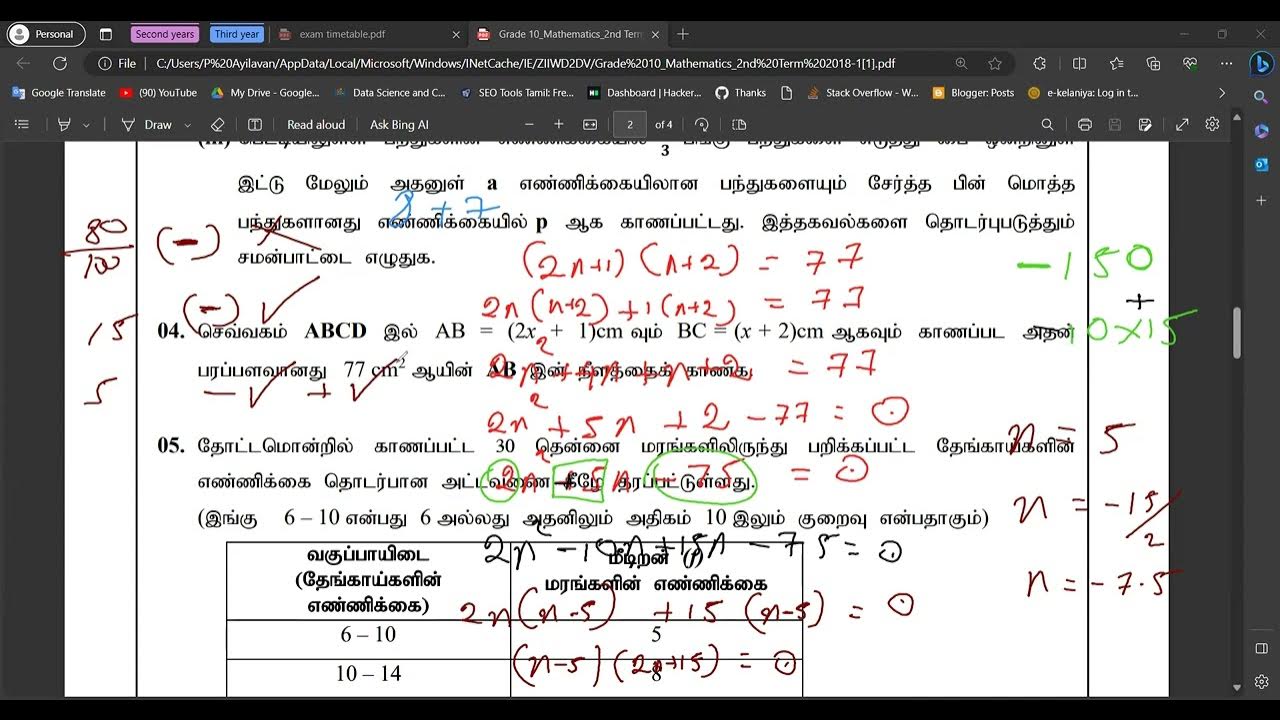 Personal
Second years
Third year
exam timetable.pdf
Grade 10_Mathematics_2nd Term
File
C:/Users/P%20Ayilavan/AppData/Local/Microsoft/Windows/INetCache/IE/ZIIWD2DV/Grade%2010_Mathematics_2nd%20Term%202018-1[1].pdf
Google Translate
(90) YouTube
My Drive - Google...
Data Science and C...
SEO Tools Tamil: Fre...
Dashboard | Hacker...
Thanks
Stack Overflow - W...
Blogger: Posts
e-kelaniya: Log in t...
Draw
Read aloud
Ask Bing AI
2 of 4
3
இட்டு மேலும் அதனுள் a எண்ணிக்கையிலான பந்துகளையும் சேர்த்த பின் மொத்த
8 + 7
பந்துகளானது எண்ணிக்கையில் p ஆக காணப்பட்டது. இத்தகவல்களை தொடர்புபடுத்தும்
சமன்பாட்டை எழுதுக.
80/100
(-)
(2x+1) (x+2) = 77
-150
(-)
2x(x+2) +1(x+2) = 77
+
15
04. செவ்வகம் ABCD இல் AB = (2x + 1)cm வும் BC = (x + 2)cm ஆகவும் காணப்பட அதன்
10×15
பரப்பளவானது 77 cm² ஆயின் AB இன் நீளத்தைக் காண்க.
2x² + 4x + x + 2 = 77
5
- +
2x² + 5x + 2 - 77 = 0
05. தோட்டமொன்றில் காணப்பட்ட 30 தென்னை மரங்களிலிருந்து பறிக்கப்பட்ட தேங்காய்களின்
x = 5
எண்ணிக்கை தொடர்பான அட்டவணை கீழே தரப்பட்டுள்ளது.
2x² + 5x - 75 = 0
(இங்கு 6 – 10 என்பது 6 அல்லது அதனிலும் அதிகம் 10 இலும் குறைவு என்பதாகும்)
x = -15/2
2x² - 10x + 15x - 75 = 0
x = -7.5
வகுப்பாயிடை
(தேங்காய்களின்
எண்ணிக்கை)
மீடிறன் (f)
மரங்களின் எண்ணிக்கை
2x(x-5) +15 (x-5) = 0
6 – 10
5
(x-5) (2x+15) = 0
10 – 14
8